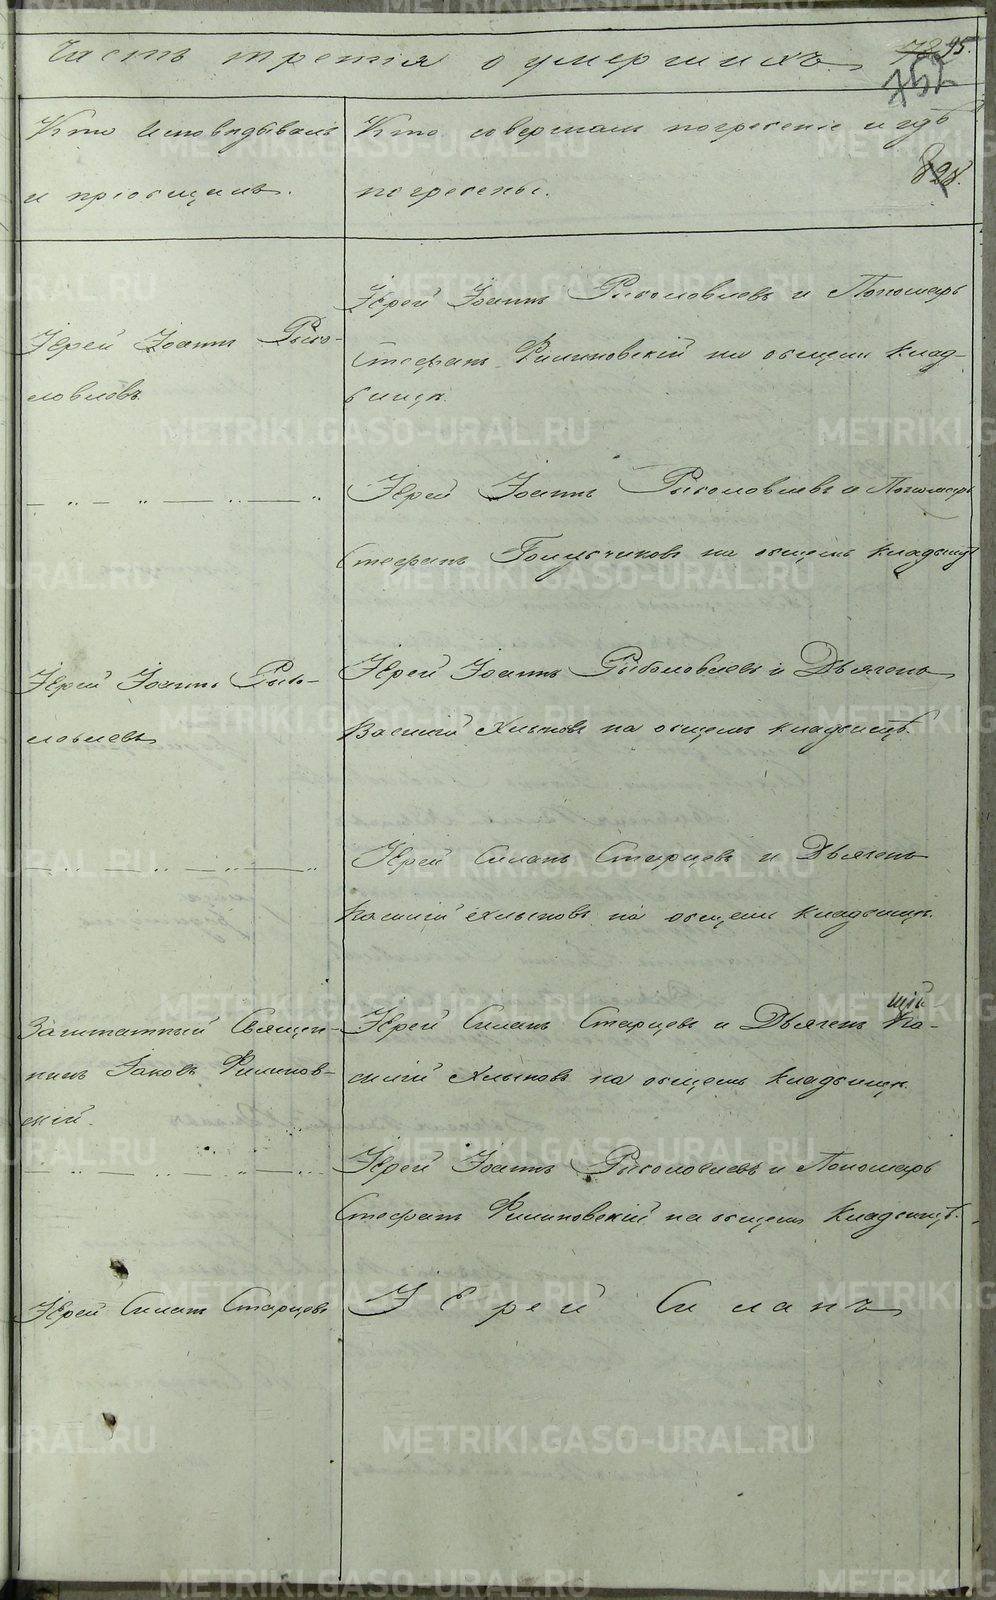 Часть третія о умершихъ.
95.
752
828.
Кто исповѣдывалъ
и пріобщилъ.
Кто совершалъ погребеніе и гдѣ
погребены.
Іерей Іоаннъ Рыбо-
ловлевъ
Іерей Іоаннъ Рыболовлевъ и Пономарь
Стефанъ Филиповскій на общемъ клад-
бищѣ.
— „ — „ — „ — „
Іерей Іоаннъ Рыболовлевъ и Пономарь
Стефанъ на общемъ кладбищѣ
Іерей Іоаннъ Рыбо-
ловлевъ
Іерей Іоаннъ Рыболовлевъ и Дьячекъ
Василій Хлыновъ на общемъ кладбищѣ.
— „ — „ — „ — „
Іерей Силанъ Старцевъ и Дьячекъ
Василій Хлыновъ на общемъ кладбищѣ.
Заштатный Священ-
никъ Іаковъ Филипов-
скій.
Іерей Силанъ Старцевъ и Дьячекъ Ва-
силій Хлыновъ на общемъ кладбищѣ.
— „ — „ — „ — „
Іерей Іоаннъ Рыболовлевъ и Пономарь
Стефанъ Филиповскій на общемъ кладбищѣ.
Іерей Силанъ Старцевъ
Іерей Силанъ
METRIKI.GASO-URAL.RU